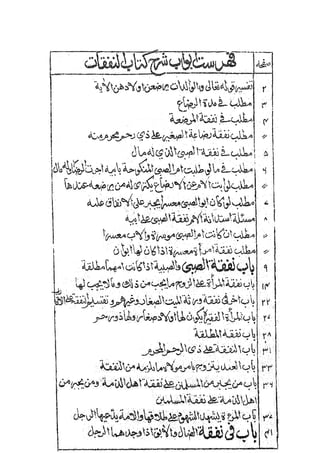 صفحه فهرست ابواب شرح كتاب النفقات
٢ تفسير قوله تعالى والوالدات يرضعن اولادهن الآية
٣ مطلب في مدة الرضاع
٤ مطلب في نفقة المرضعة
مطلب نفقة رضاعة الصغير على ذي رحم محرم منه
٥ مطلب في نفقة الصبي الذي له مال
٦ مطلب في ما لو طلبت ام الصبي المنكوحة بابيه اجرة الرضاع له مال
مطلب لو ابت الام عن الارضاع يكترى له من يرضعه عندها
٧ مطلب لو كان ابو الصبي معسرا يجبر على الانفاق عليه
٨ مسئلة استدانة الام نفقة الصبي على ابيه
مطلب ان كانت ام الصبي موسرة والاب معسرا
مطلب نفقة امرأة معسرة اذا كان لها ابوان
٩ باب نفقة الصبي والصبية اذا كانت امهما مطلقة
١٤ باب نفقة المرأة على الزوج ما يجب من ذلك وما لا يجب لها
٢٢ باب آخر في نفقة ورثة الميت الصغار وغيرهم وتفسير النفقة على
٢٥ باب المرأة الفقيرة يكون لها اولاد صغار ولها ذو رحم
٢٨ باب نفقة المطلقة
٣١ باب النفقة على ذي الرحم المحرم
باب العبد يتزوج بامر مولاه ما يلزمه من النفقة
٣٦ باب من يجبر من المسلمين على نفقة اهل الذمة ومن يجبر من
اهل الذمة على نفقة المسلمين
٣٨ باب المرأة يشهد الشهود على طلاقها والامة يدخلها الرجل
٤١ باب في نفقة الضال والآبق اذا وجدهما الرجل